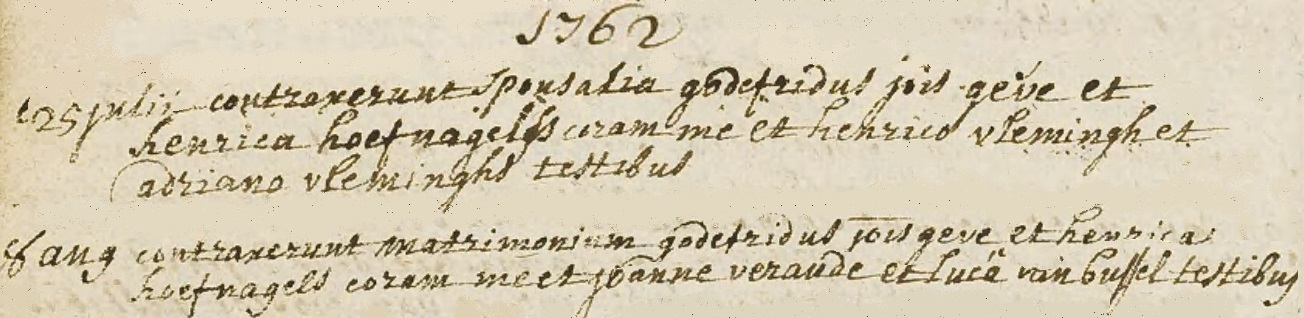 1762
25 julii contraxerunt sponsalia godefridus jois geve et
henrica hoefnagels coram me et henrico vlemingh et
adriano vleminghs testibus
8 aug contraxerunt matrimonium godefridus jois geve et henrica
hoefnagels coram me et joanne verande et luca van bussel testibus